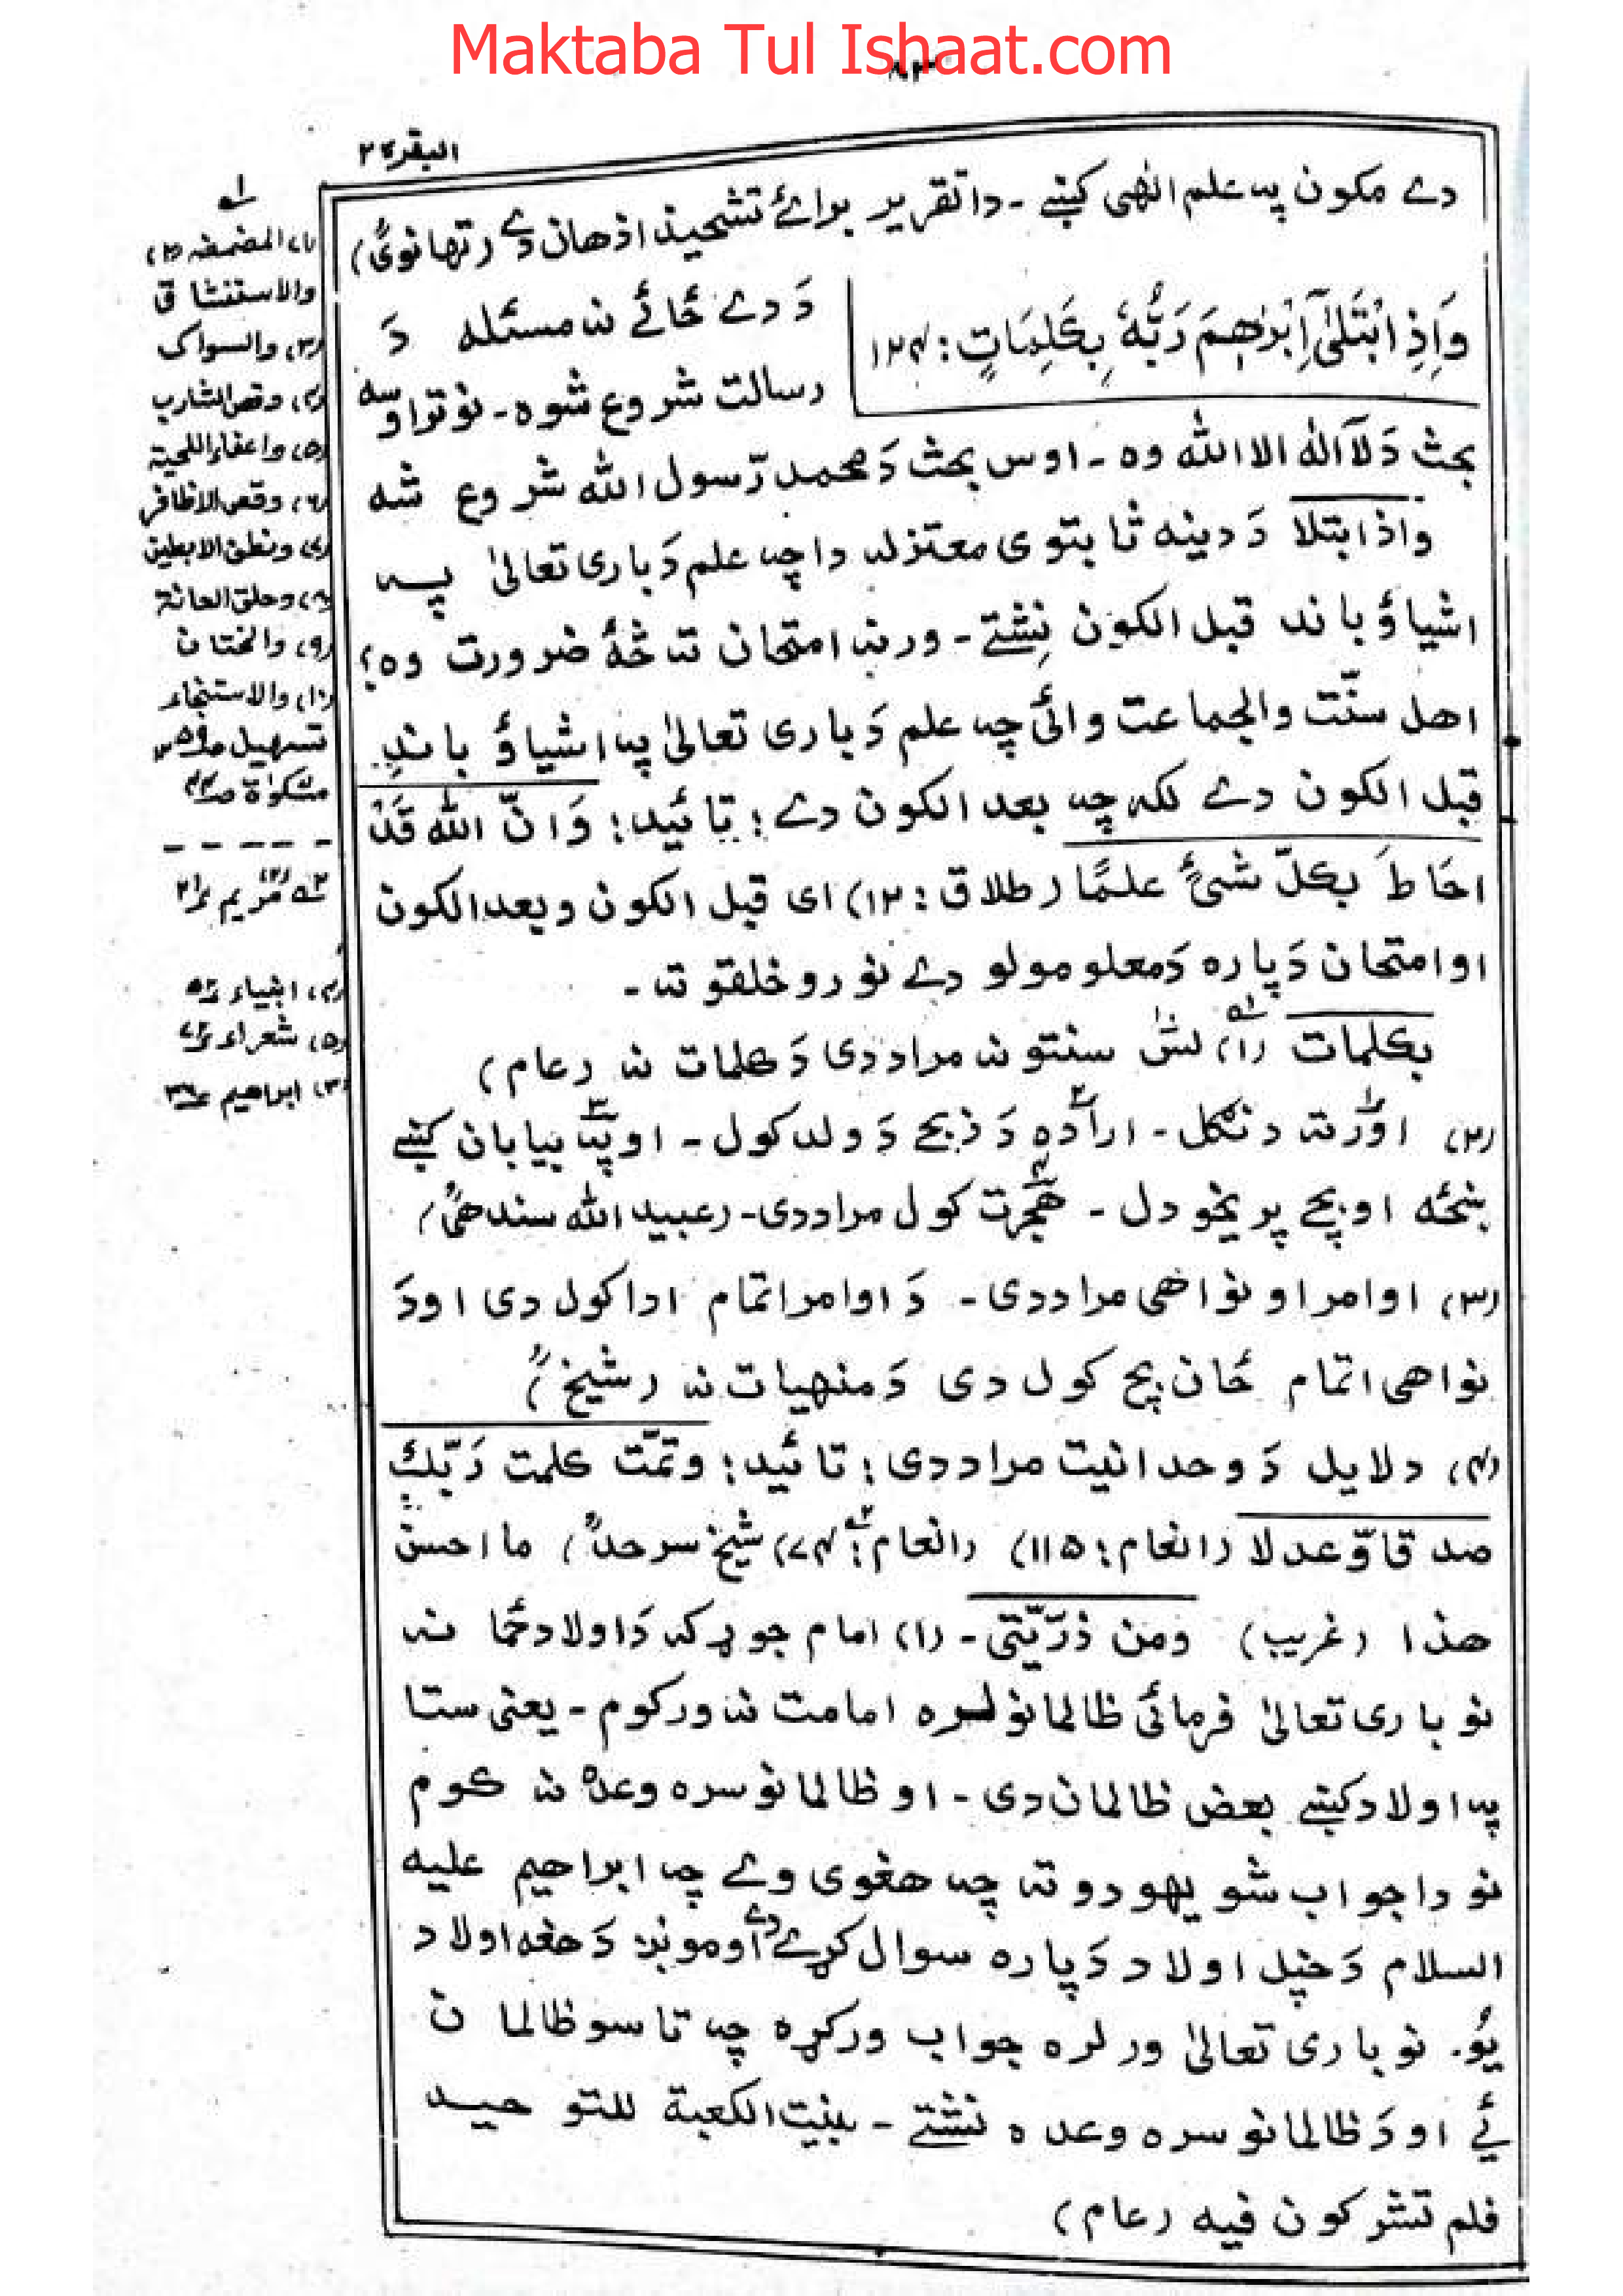 Maktaba Tul Ishaat.com
٨٣
البقرة ٢
دے مکون پہ علم الٰھی کښے ۔ دا تقریر برائے تشحیذ اذھان دے (تھانویؒ)
وَاِذِ ابْتَلٰىٓ اِبْرٰهٖمَ رَبُّهٗ بِكَلِمَاتٍ : ١٢٤
دَ دے ځائے نہ مسئلہ دَ
رسالت شروع شوہ ۔ نو تراوسہ
بحث دَ لآ الٰہ الا اللہ وہ ۔ اوس بحث دَ محمد رّسول اللہ شروع شہ
واذ ابتلا دَ دینہ ثابتوی معتزلہ دا چہ علم دَ باری تعالیٰ پہ
اشیاؤ باند قبل الکون نِشتے ۔ ورنہ امتحان تہ څهٔ ضرورت وہ؛
اھل سنّت والجماعت وائی چہ علم دَ باری تعالیٰ پہ اشیاؤ باندِ
قبل الکون دے لکہ چہ بعد الکون دے ؛ تائید : وَ انّ اللہ قَدْ
احَاطَ بکلّ شیءٍ علمًا (طلاق : ١٢) ای قبل الکون و بعد الکون
او امتحان دَپارہ دَ معلومولو دے نورو خلقو تہ ۔
بکلمات (١) لس سنتونہ مراد دی دَ کلمات نہ (عام)
(٢) اوّر تہ دنګل ۔ ارادہ دَ ذبحے دَ ولد کول ۔ او پہ بیابان کښے
ښځہ او بچے پریخودل ۔ ھجرت کول مراد دی ۔ (عبید اللہ سندھیؒ)
(٣) اوامر او نواھی مراد دی ۔ دَ اوامر اتمام ادا کول دی او دَ
نواھی اتمام ځان بچ کول دی دَ منھیات نہ (شیخؒ)
(٤) دلایل دَ وحدانیت مراد دی ؛ تائید : وتمّت کلمت رَبّكَ
صدقا وّعدلا (انعام : ١١٥) (انعام : ٧٤) شیخ سرحدؒ) ما احسن
ھذا (غریب) ومن ذرّیّتی ۔ (١) امام جوړ کہ دَ اولاد ځما نہ
نو باری تعالیٰ فرمائی ظالمانو لرہ امامت نہ ورکوم ۔ یعنی ستا
پہ اولاد کښے بعض ظالمان دی ۔ او ظالمانو سرہ وعدہ نہ کوم
نو دا جواب شو یھودو تہ چہ ھغوی وے چہ ابراھیم علیہ
السلام دَ خپل اولاد دَپارہ سوال کړے دے او مونږ دَ ھغہ اولاد
یُو۔ نو باری تعالیٰ ورلرہ جواب ورکړہ چہ تاسو ظالمان
ئے او دَ ظالمانو سرہ وعدہ نشتے ۔ بنیت الکعبة للتوحید
فلم تشرکون فیہ (عام)
لہ
(١) المضمضہ (٢)
والاستنشاق
(٣) والسواک
(٤) وقص الشارب
(٥) واعفاء اللحیة
(٦) وقص الاظافر
(٧) ونطق الابطین
(٨) وحلق العانة
(٩) والختان
(١٠) والاستنجاء
تسھیل
مشکوٰة ص ٤٤
مریم
(٤) انبیاء
(٥) شعراء
(٣) ابراھیم